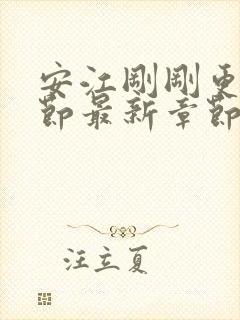 安江刚刚更
节最新章节
汪立夏